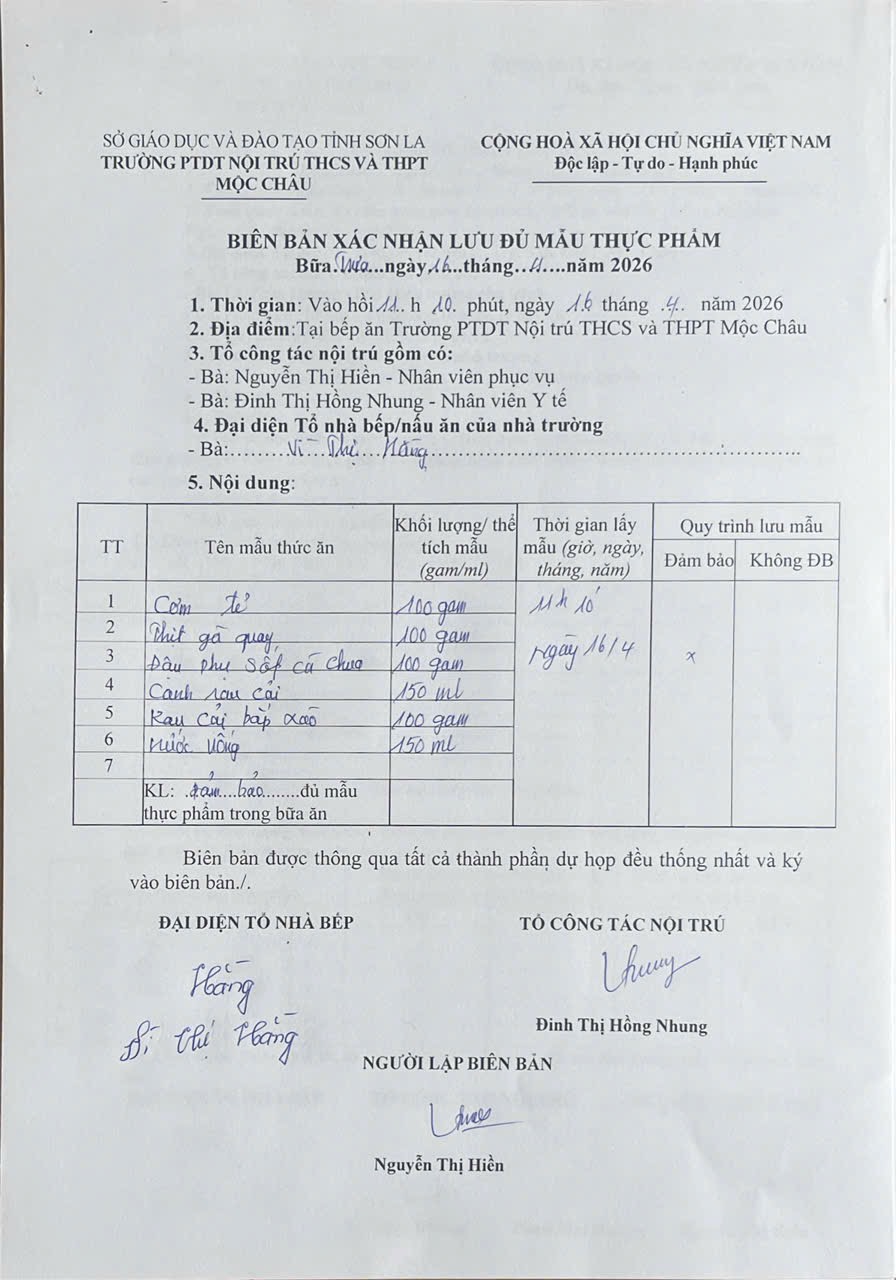 SỞ GIÁO DỤC VÀ ĐÀO TẠO TỈNH SƠN LA
TRƯỜNG PTDT NỘI TRÚ THCS VÀ THPT
MỘC CHÂU
CỘNG HOÀ XÃ HỘI CHỦ NGHĨA VIỆT NAM
Độc lập - Tự do - Hạnh phúc
BIÊN BẢN XÁC NHẬN LƯU ĐỦ MẪU THỰC PHẨM
Bữa.Trưa...ngày.16...tháng..4....năm 2026
1. Thời gian: Vào hồi 11.. h 10. phút, ngày 16 tháng .4.. năm 2026
2. Địa điểm:Tại bếp ăn Trường PTDT Nội trú THCS và THPT Mộc Châu
3. Tổ công tác nội trú gồm có:
- Bà: Nguyễn Thị Hiền - Nhân viên phục vụ
- Bà: Đinh Thị Hồng Nhung - Nhân viên Y tế
4. Đại diện Tổ nhà bếp/nấu ăn của nhà trường
- Bà:.........Vì...Thị....Hằng..........................................................
5. Nội dung:
TT
Tên mẫu thức ăn
Khối lượng/ thể tích mẫu (gam/ml)
Thời gian lấy mẫu (giờ, ngày, tháng, năm)
Quy trình lưu mẫu
Đảm bảo
Không ĐB
1 Cơm tẻ 100 gam 11h 10'
2 Thịt gà quay 100 gam
3 Đậu phụ sốt cà chua 100 gam Ngày 16/4 x
4 Canh rau cải 150 ml
5 Rau cải bắp xào 100 gam
6 Nước uống 150 ml
7
KL: .đảm....bảo........đủ mẫu
thực phẩm trong bữa ăn
Biên bản được thông qua tất cả thành phần dự họp đều thống nhất và ký
vào biên bản./.
ĐẠI DIỆN TỔ NHÀ BẾP
TỔ CÔNG TÁC NỘI TRÚ
Hằng
Vì Thị Hằng
Nhung
Đinh Thị Hồng Nhung
NGƯỜI LẬP BIÊN BẢN
Nguyễn Thị Hiền